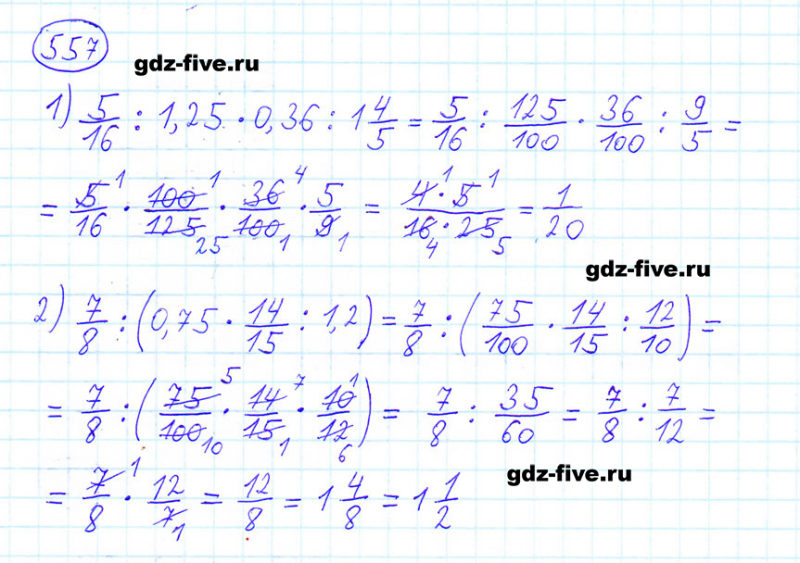 557
gdz-five.ru
1) 5/16 : 1,25 · 0,36 : 1 4/5 = 5/16 : 125/100 · 36/100 : 9/5 =
= 5/16 1 · 100/125 1 25 · 36/100 4 1 · 5/9 1 = 4·5/16·25 1 1 4 5 = 1/20
gdz-five.ru
2) 7/8 : (0,75 · 14/15 : 1,2) = 7/8 : (75/100 · 14/15 : 12/10) =
= 7/8 : (75/100 5 10 · 14/15 7 1 · 10/12 1 6) = 7/8 : 35/60 = 7/8 : 7/12 =
gdz-five.ru
= 7/8 1 · 12/7 1 = 12/8 = 1 4/8 = 1 1/2